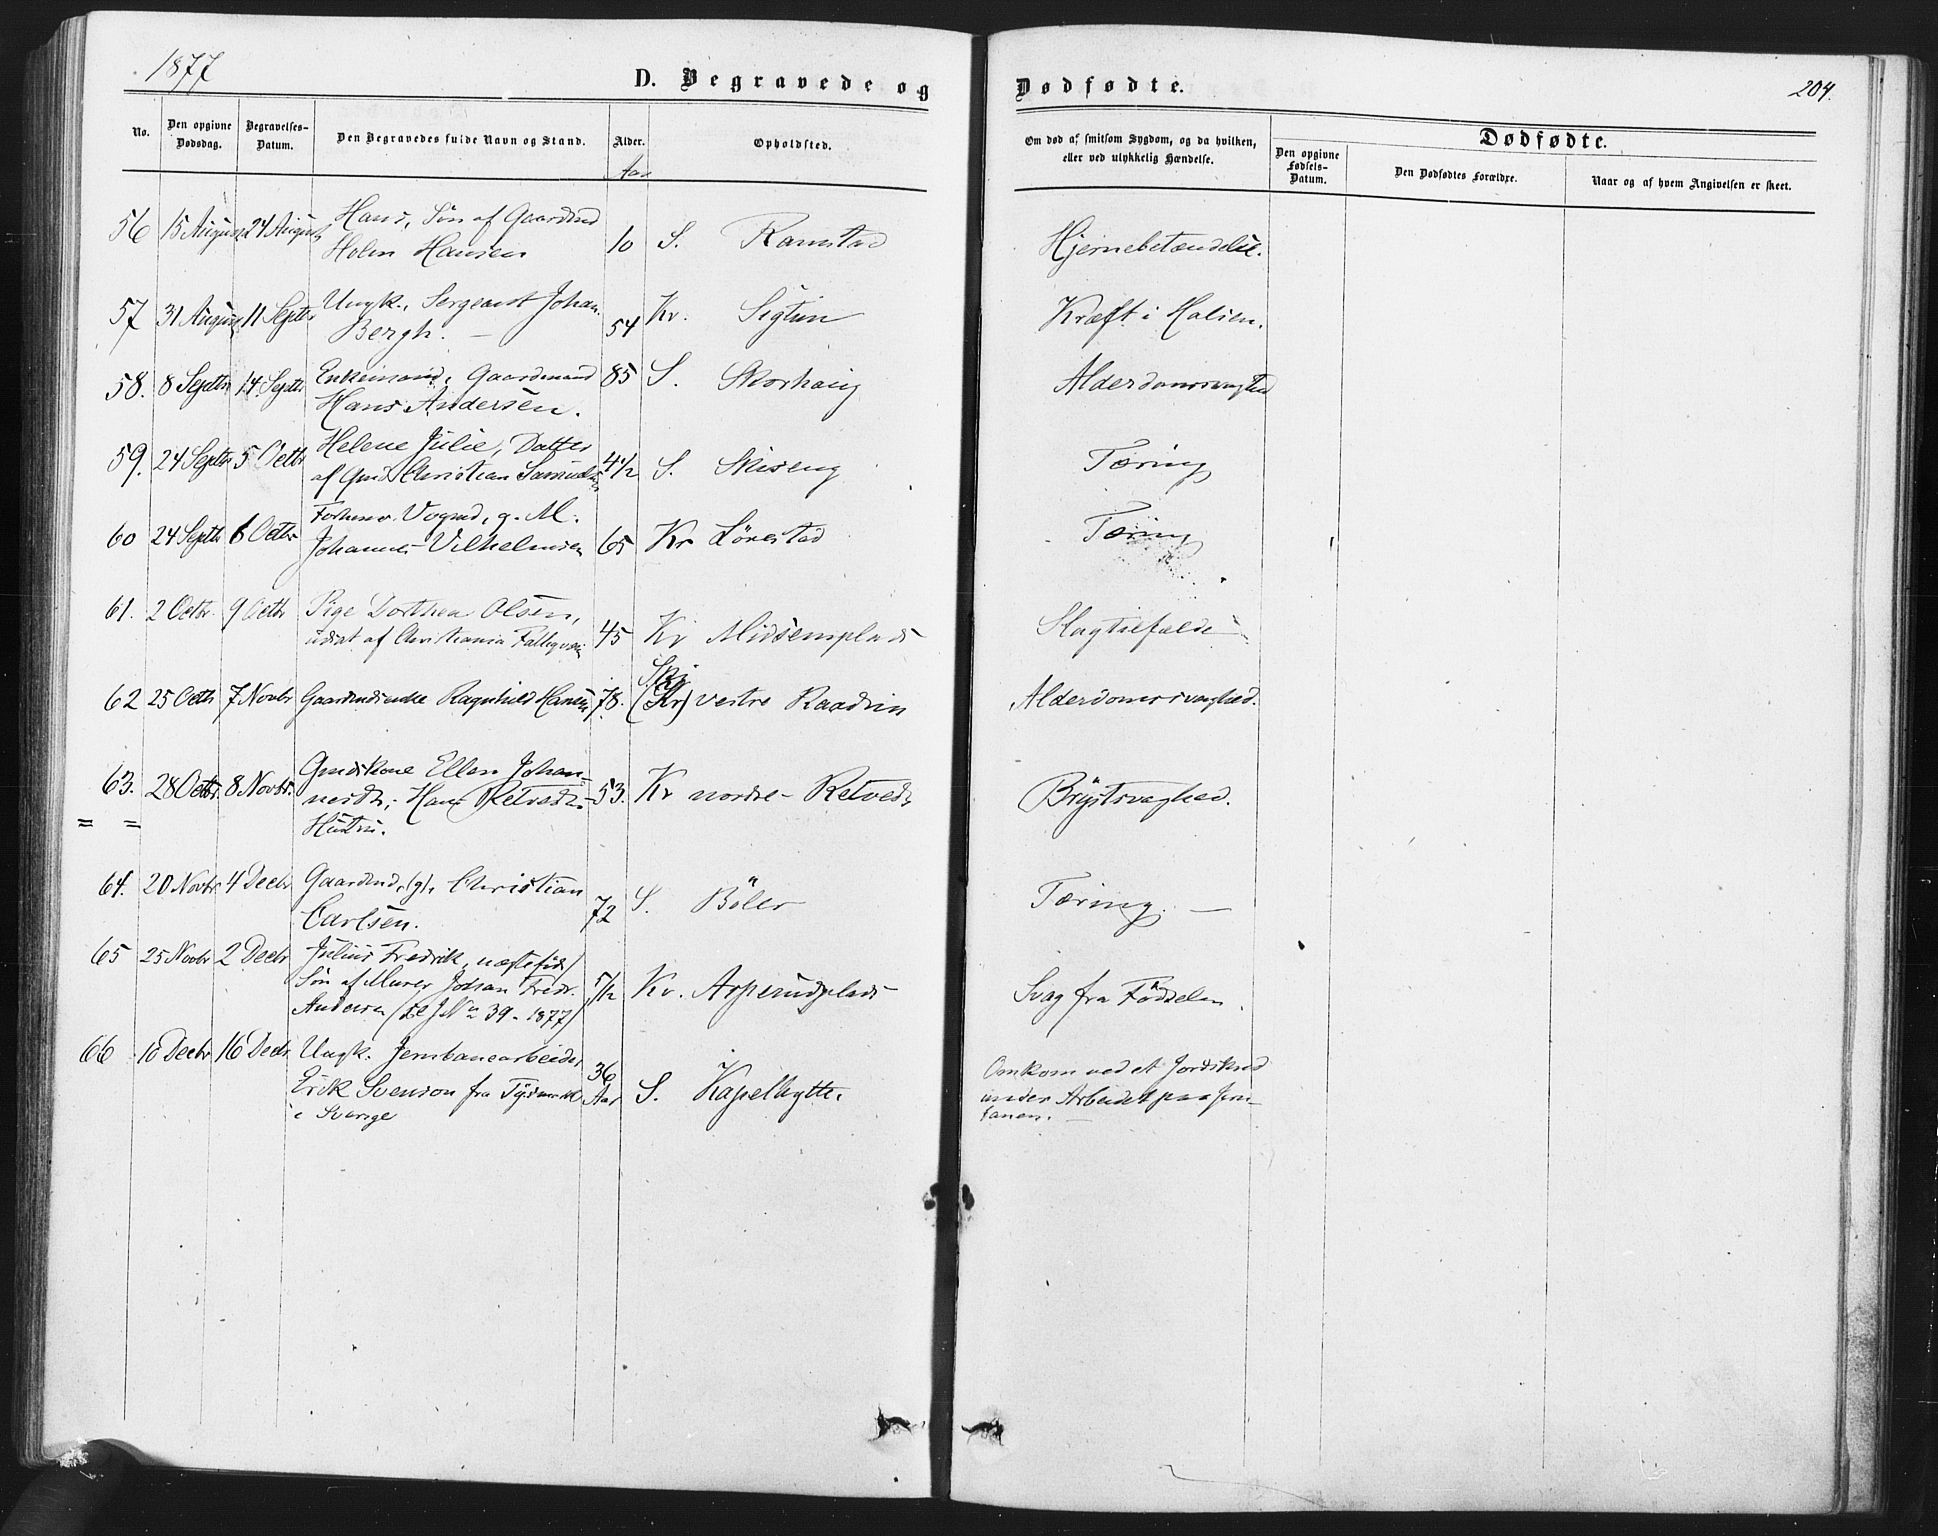 1877
D. Begravede og
No.
Den opgivne Dødsdag.
Begravelses-Datum.
Den Begravedes fulde Navn og Stand.
Alder.
Aar
Opholdsted.
56 15 August 24 August Hans, Søn af Gaardmd
Holm Hansen 10 S. Ramstad
57 31 August 11 Septr Ungk., Sergeant Johan
Bergh. — 54 Kr. Sigtun
58. 8 Septbr 14 Septbr Enkemand, Gaardmand 85 S. Skorhaug
Hans Andersen.
59. 24 Septbr 5 Octbr Helene Julie, Datter
af Gmd Christian Samuelsen 4½ S. Skiseng
60 24 Septbr 6 Octbr Forhenv. g. M.
Johannes Vilhelmsen 65 Kr
61. 2 Octbr. 9 Octbr Pige Dorthea Olsen,
af Christiania 45 Kr Midsemplads
Ski
62 25 Octbr 7 Novbr Gaardmdsenke Ragnhild Hansen 78. (Kr) vestre Raadim
63. 28 Octbr. 8 Novbr. Gmdskone Ellen Johan-
nesdtr; Hans Retvedts 53. Kr nordre Retvedt
= = Hustru.
64. 20 Novbr 4 Decbr Gaardmd, (g), Christian
Carlsen. 72 S. Böler
65 25 Novbr 2 Decbr Julius Fredrik, uægtefød/
Søn af Murer Johan Fredr. 5/12 Kr. Asperudplads
Andersen ( No 39 - 1877)
66 10 Decbr 16 Decbr Ungk. Jernbanearbeider
Erik Svenson fra 36 Aar S. Kapelhytte.
i Sverige
Dødfødte.
204.
Om død af smitsom Sygdom, og da hvilken,
eller ved ulykkelig Hændelse.
Dødfødte.
Den opgivne Fødsels-Datum.
Den Dødfødtes Forældre.
Naar og af hvem Angivelsen er skeet.
Hjernebetændelse.
Kræft i Halsen.
Alderdomssvaghed
Tæring
Tæring
Slagtilfælde
Alderdomssvaghed.
Brÿstsvaghed.
Tæring. —
Svag fra Fødselen
Omkom ved et Jordskred
under Arbeidet paa Jern-
banen.